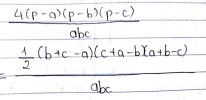 4(p-a)(p-b)(p-c)
abc
= 1/2 (b+c-a)(c+a-b)(a+b-c)
abc